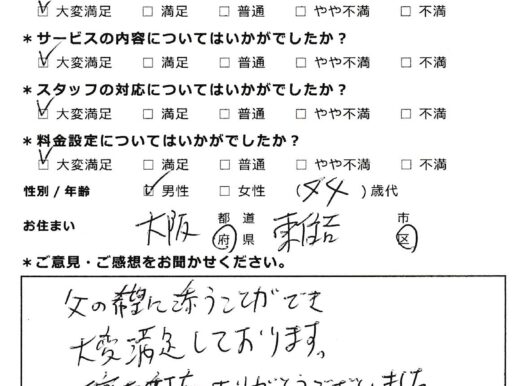 ☑ 大変満足 □ 満足 □ 普通 □ やや不満 □ 不満
＊サービスの内容についてはいかがでしたか？
☑ 大変満足 □ 満足 □ 普通 □ やや不満 □ 不満
＊スタッフの対応についてはいかがでしたか？
☑ 大変満足 □ 満足 □ 普通 □ やや不満 □ 不満
＊料金設定についてはいかがでしたか？
☑ 大変満足 □ 満足 □ 普通 □ やや不満 □ 不満
性別 / 年齢 ☑ 男性 □ 女性 ( )歳代
お住まい 大阪 都道府県 東住吉 市区
＊ご意見・ご感想をお聞かせください。
父の希望に添うことができ
大変満足しております。
ありがとうございました